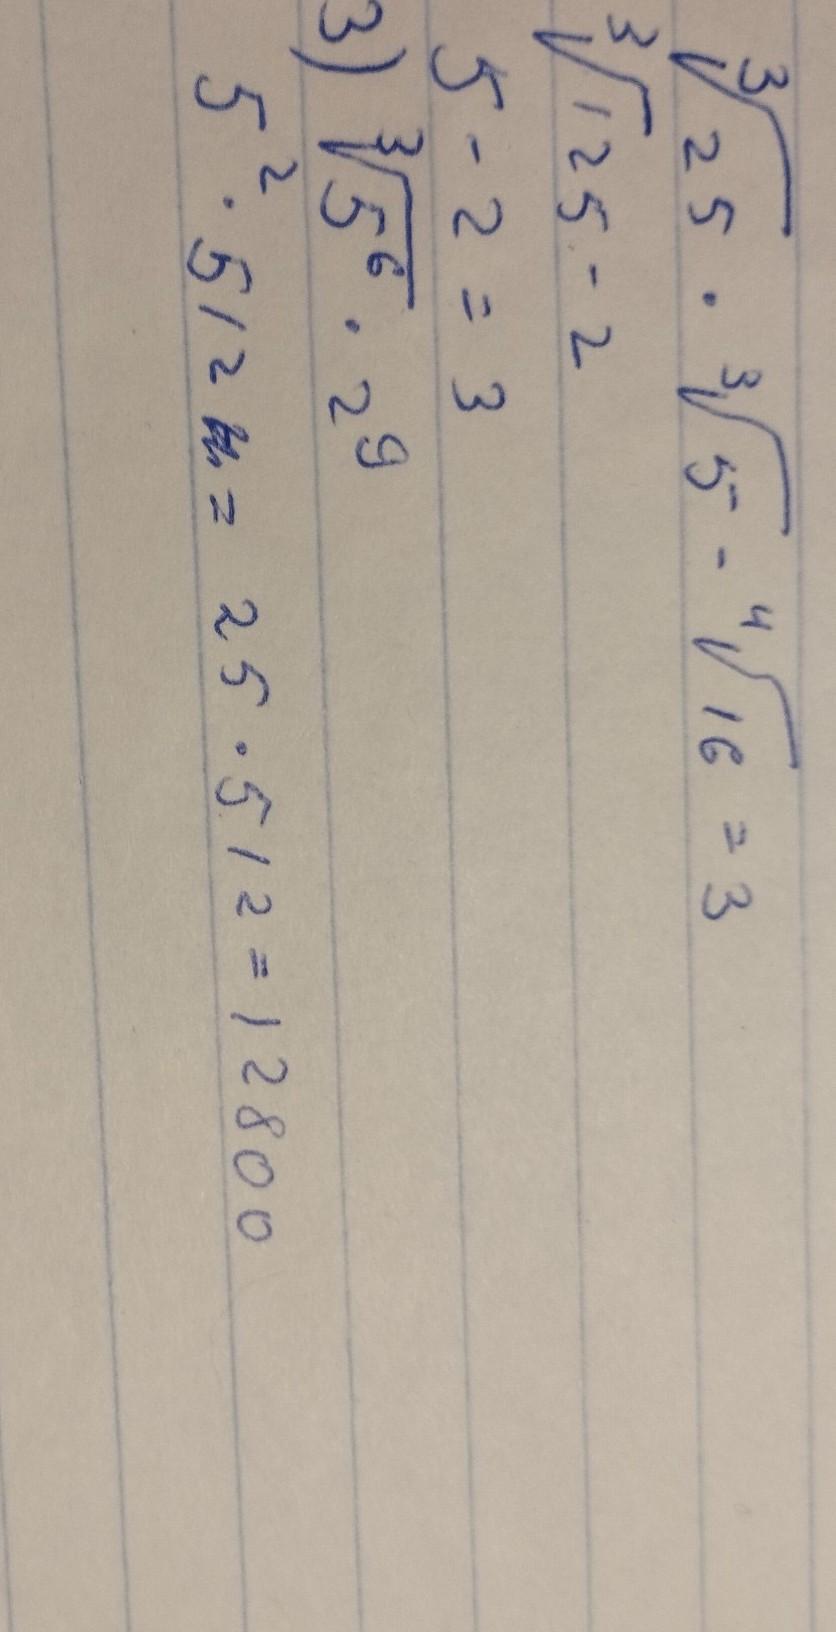 ∛25 · ∛5 - ∜16 = 3
∛125 - 2
5 - 2 = 3
3) ∛5⁶ · 2⁹
5² · 512 = 25 · 512 = 12800